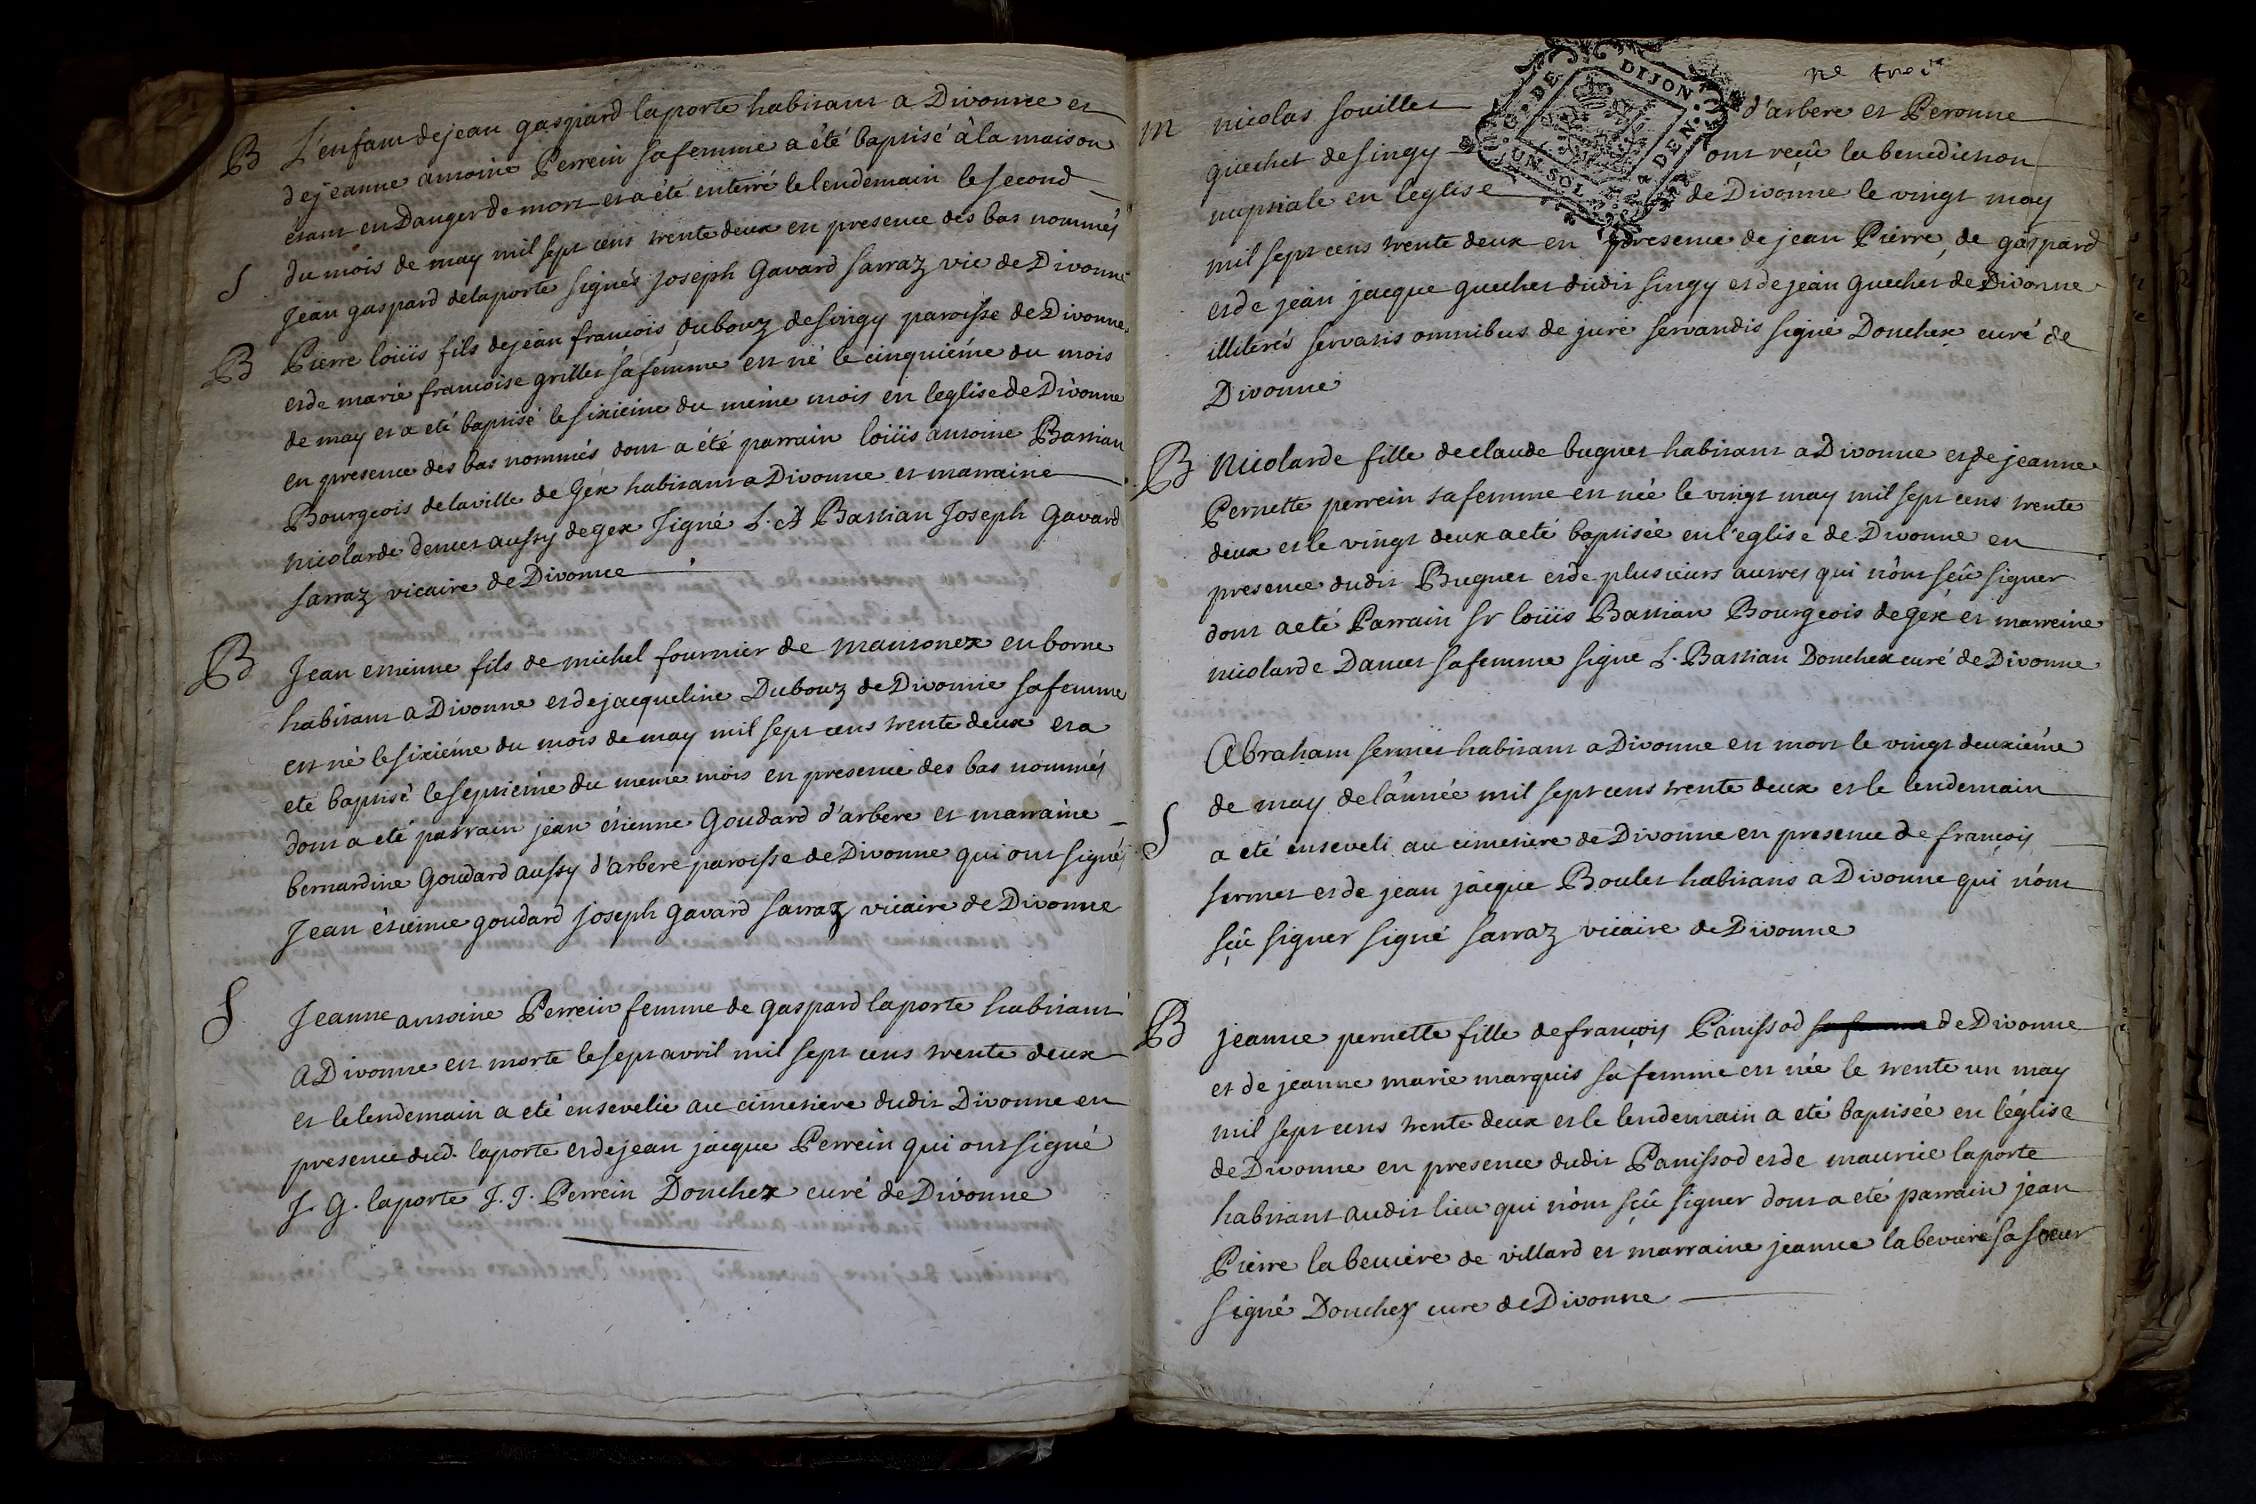 B L'enfant de jean gaspard laporte habitant a Divonne et
de jeanne antoine Perrein sa femme a été baptisé à la maison
étant en Danger de mort et a été enterré le lendemain le second
S du mois de may mil sept cens trente deux en presence des bas nommés
Jean gaspard delaporte signés joseph Gavard sarraz vic de Divonne
B Pierre loüis fils de jean francois dubouz de singy paroisse de Divonne
et de marie francoise grillet sa femme est né le cinquiéme du mois
de may et a eté baptisé le sixieme du même mois en l'eglise de Divonne
en presence des bas nommés dont a été parrain loüis antoine Bastian
Bourgeois de la ville de Gex habitant a Divonne et marraine
nicolarde demet aussy de gex signé L. A Bastian Joseph Gavard
sarraz vicaire de Divonne
B Jean etienne fils de michel fournier de mansonex en borne
habitant a Divonne et de jacqueline Dubouz de Divonne sa femme
est né le sixiéme du mois de may mil sept cens trente deux et a
eté baptisé le septiéme du meme mois en presence des bas nommés
dont a eté parrain jean étienne Goudard d'arbere et marraine
bernardine Goudard aussy d'arbere paroisse de Divonne qui ont signés
Jean étienne goudard joseph gavard sarraz vicaire de Divonne
S Jeanne antoine Perrein femme de gaspard laporte habitant
a Divonne est morte le sept avril mil sept cens trente deux
et le lendemain a eté ensevelie au cimetiere dudit Divonne en
presence dud. laporte et de jean jacque Perrein qui ont signé
J. G. laporte J. J. Perrein Douchex curé de Divonne
G. DE DIJON
UN SOL
DEN.
m nicolas souillet d'arbere et Peronne
guechet de singy ont reçû la benediction
nuptiale en l'eglise de Divonne le vingt may
mil sept cens trente deux en presence de jean Pierre, de gaspard
et de jean jacque guechet dudit singy et de jean guechet de Divonne
illiterés servatis omnibus de jure servandis signé Douchex curé de
Divonne
B Nicolarde fille de claude buguet habitant a Divonne et de jeanne
Pernette perrein sa femme est née le vingt may mil sept cens trente
deux et le vingt deux a eté baptisée en l'eglise de Divonne en
presence dudit Buguet et de plusieurs autres qui n'ont sçû signer
dont a eté Parrain sr loüis Bastian Bourgeois de gex et marreine
nicolarde Dancet sa femme signé L. Bastian Douchex curé de Divonne
Abraham sermet habitant a Divonne est mort le vingt deuxiéme
de may de l'année mil sept cens trente deux et le lendemain
S a eté enseveli au cimetiere de Divonne en presence de françois
sermet et de jean jacque Boulet habitans a Divonne qui n'ont
sçû signer signé sarraz vicaire de Divonne
B jeanne pernette fille de françois Panissod sa femme de Divonne
et de jeanne marie marquis sa femme est née le trente un may
mil sept cens trente deux et le lendemain a eté baptisée en l'église
de Divonne en presence dudit Panissod et de maurice laporte
habitant audit lieu qui n'ont sçû signer dont a eté parrain jean
Pierre la beviere de villard et marraine jeanne la beviere sa soeur
signé Douchex curé de Divonne